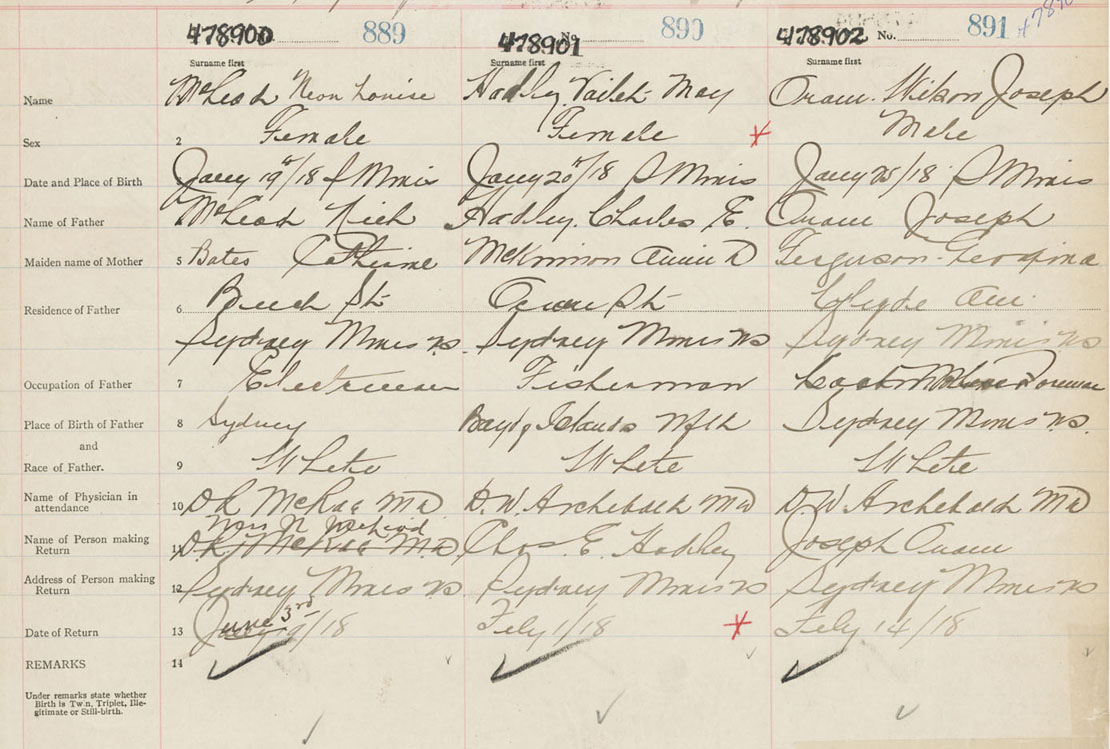 478900 889 478901 No. 890 478902 No. 891
Surname first Surname first Surname first
Name McLeod Neon Louise Hadley, Vailet May Oram. Wilson Joseph
Sex 2 Female Female Male
Date and Place of Birth Jany 19th/18 S Mines Jany 20th/18 S Mines Jany 25/18 S Mines
Name of Father McLeod Rich Hadley. Charles E. Oram Joseph
Maiden name of Mother 5 Bates Catherine McKinnon Annie D Ferguson Georgina
Residence of Father 6 Beech St. St. Clyde Ave.
Sydney Mines NS. Sydney Mines NS Sydney Mines NS
Occupation of Father 7 Electrician Fisherman Foreman
Place of Birth of Father 8 Sydney Islands Nfld Sydney Mines N.S.
and
Race of Father. 9 White White White
Name of Physician in
attendance 10 D R McRae MD D. W. Archebald MD D. W Archebald MD
Mrs N McLeod
Name of Person making
Return 11 D R McRae M.D. Chas. E. Hadley Joseph Oram
Address of Person making
Return 12 Sydney Mines NS Sydney Mines NS Sydney Mines NS
June 3rd
Date of Return 13 /18 Feby 1/18 Feby 14/18
REMARKS 14
Under remarks state whether
Birth is Twin, Triplet, Ille-
gitimate or Still-birth.